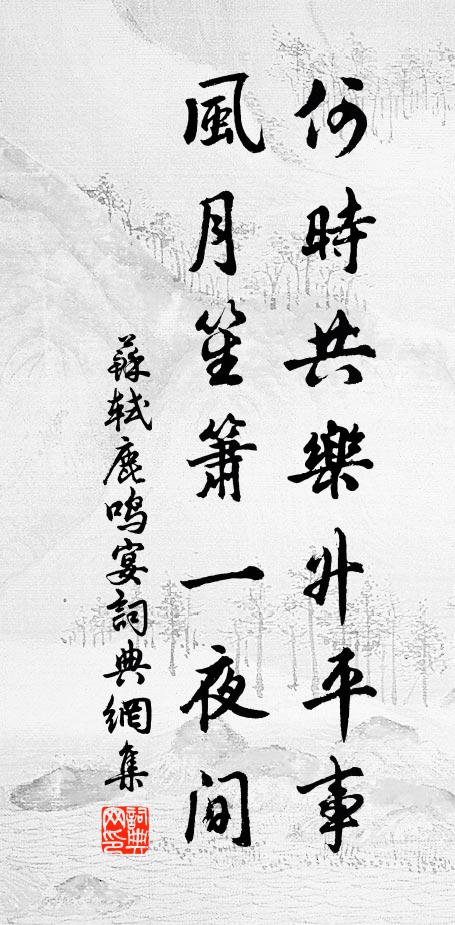 何時共樂升平事
風月笙簫一夜間
蘇軾鹿鳴宴詞典網集
詞典網印